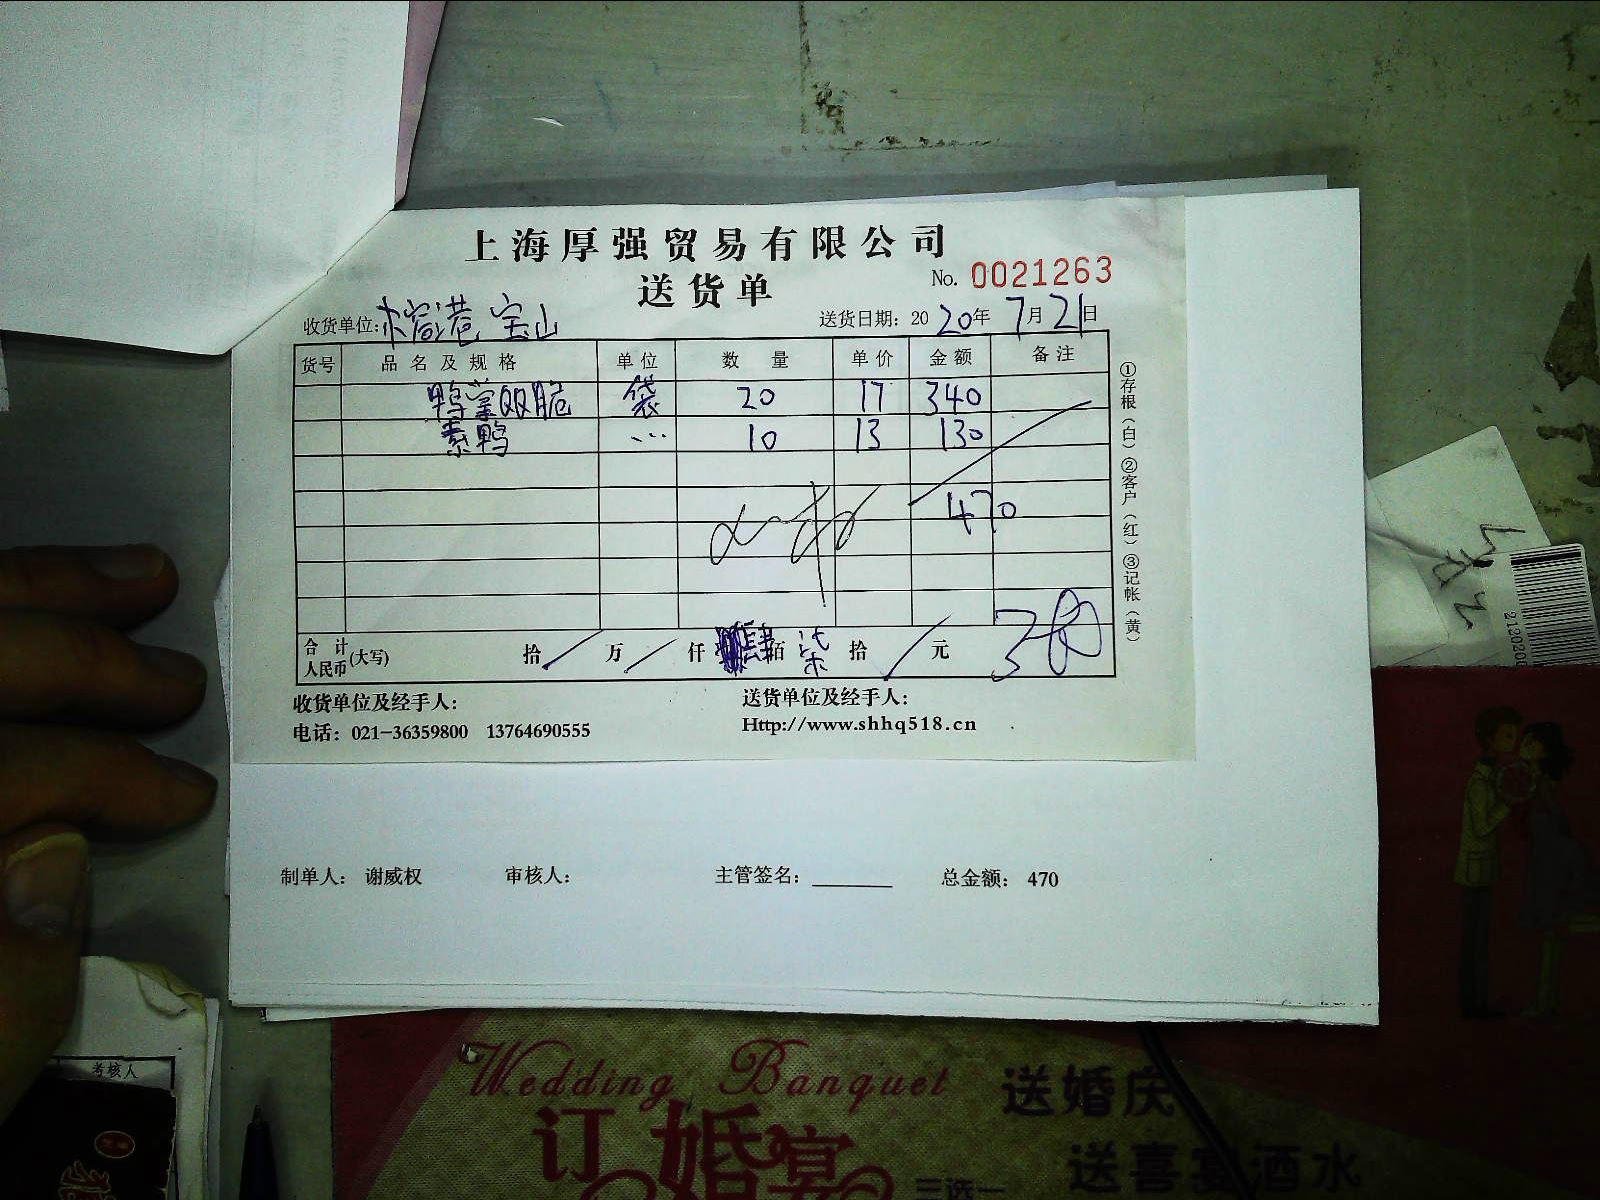 上海厚强贸易有限公司
送货单
No. 0021263
收货单位: 宝山
送货日期: 2020年7月21日
货号 品名及规格 单位 数量 单价 金额 备注
鸭掌双脆 袋 20 17 340
素鸭 〃 10 13 130
470
合计人民币(大写) 拾 万 仟 肆佰 柒拾 元
①存根(白)②客户(红)③记帐(黄)
收货单位及经手人:
送货单位及经手人:
电话: 021-36359800 13764690555
Http://www.shhq518.cn
制单人: 谢威权 审核人: 主管签名: 总金额: 470
考核人
Wedding Banquet
订婚宴
送婚庆
送喜宴酒水
三选一